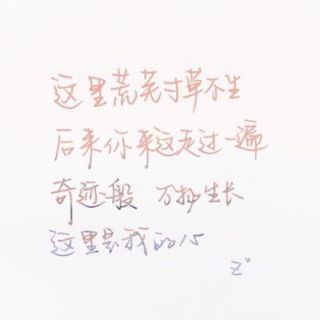 这里荒芜寸草不生
后来你来这走过一遍
奇迹般 万物生长
这里是我的心